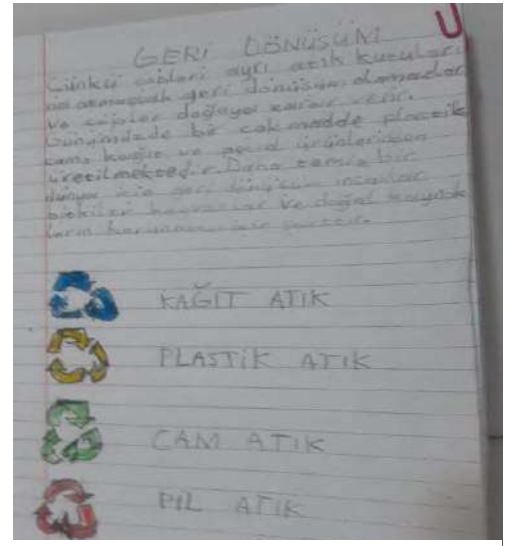 GERİ DÖNÜŞÜM
Çünkü çöpleri ayrı atık kutuları
na atmazsak geri dönüşüm olamadar
ve çöpler doğaya zarar verir.
Günümüzde bir çok madde plastik
cam kağıt ve ürünlerinden
üretilmektedir. Daha temiz bir
dünya için geri dönüşüm insanlar
bitkiler hayvanlar ve doğal kaynak
ların korunması için şarttır.
KAĞIT ATIK
PLASTİK ATIK
CAM ATIK
PİL ATIK